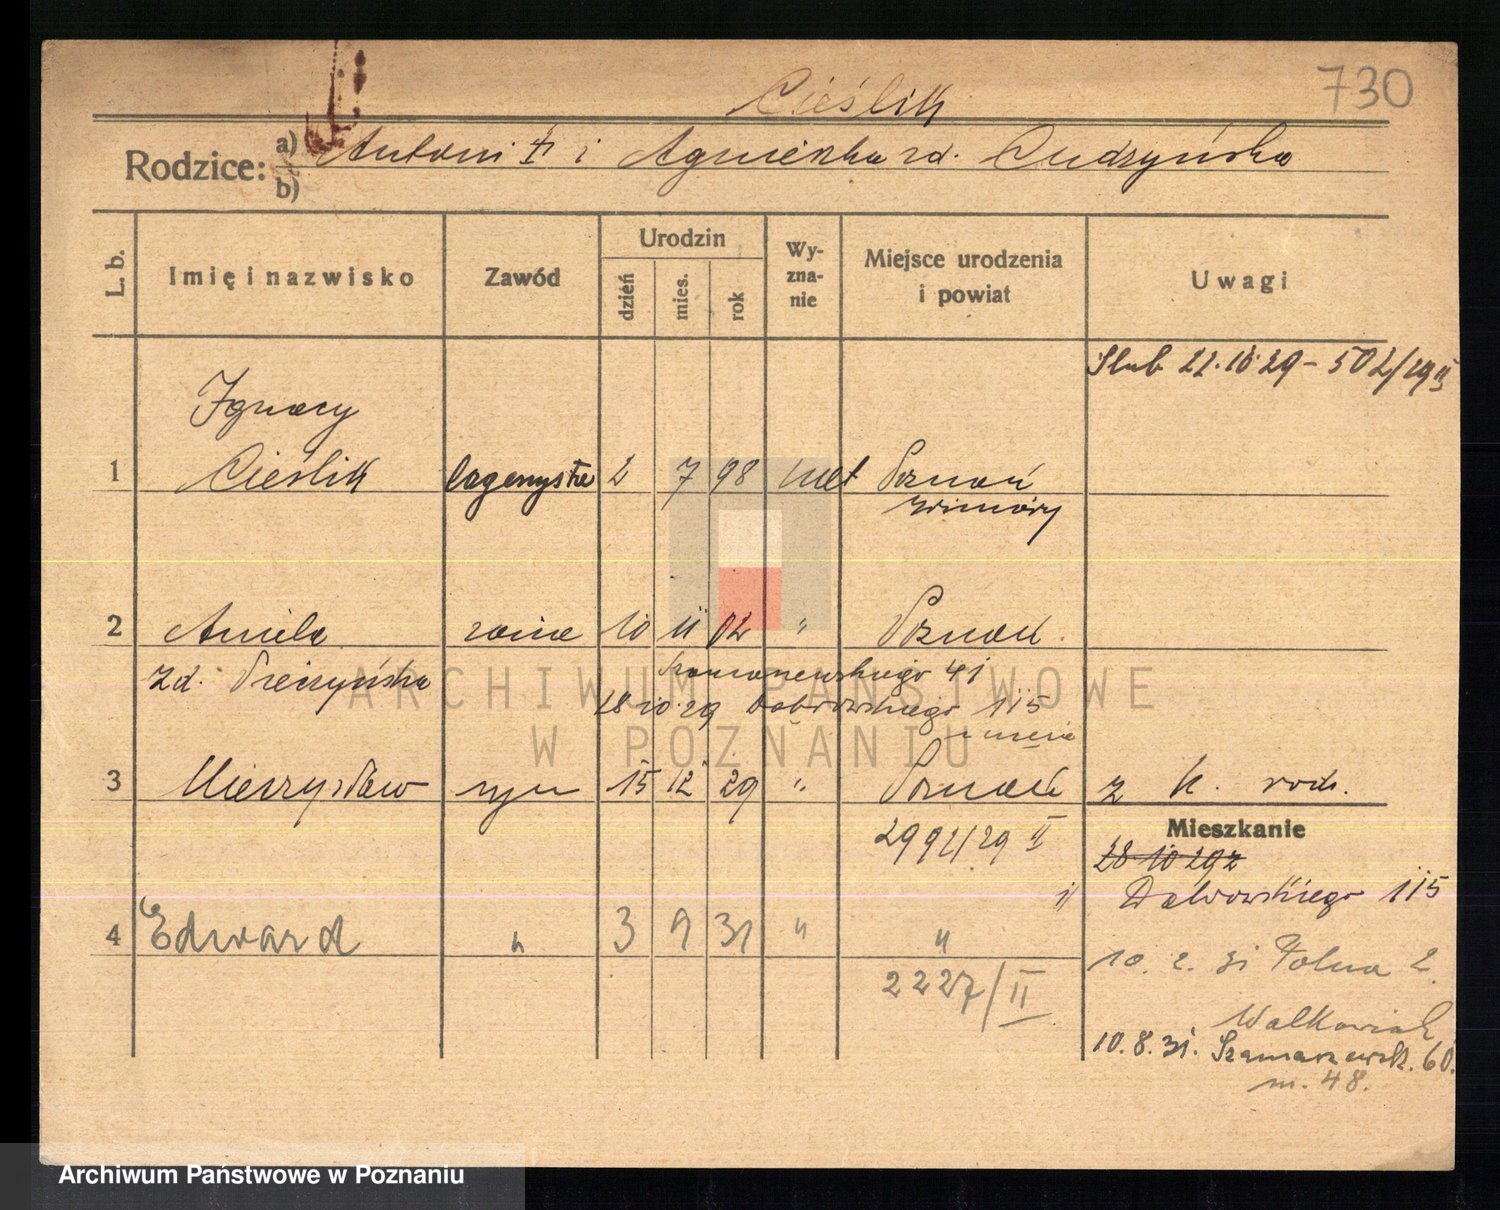 730
Cieślik
Rodzice: a) Antoni i Agnieszka zd. Cudzyńska
b)
L. b. Imię i nazwisko Zawód Urodzin dzień mies. rok Wy-zna-nie Miejsce urodzenia i powiat Uwagi
Ślub 22.10.29 – 502/29 II
Ignacy
1 Cieślik 2 7 98 kat Poznań
Winiary
2 Aniela żona 10 11 02 " Poznań
zd. 41
18 10 29 Dąbrowskiego 115
u męża
3 Mieczysław syn 15 12 29 " Poznań z k. rodz.
2992/29 II
Mieszkanie
28 10 29 z
Dąbrowskiego 115
4 Edward " 3 9 31 " "
2227/II
10. 2. 31 Polna 2
Walkowiak
10. 8. 31. Szamarzewsk. 60.
m. 48.
ARCHIWUM PAŃSTWOWE
W POZNANIU
Archiwum Państwowe w Poznaniu